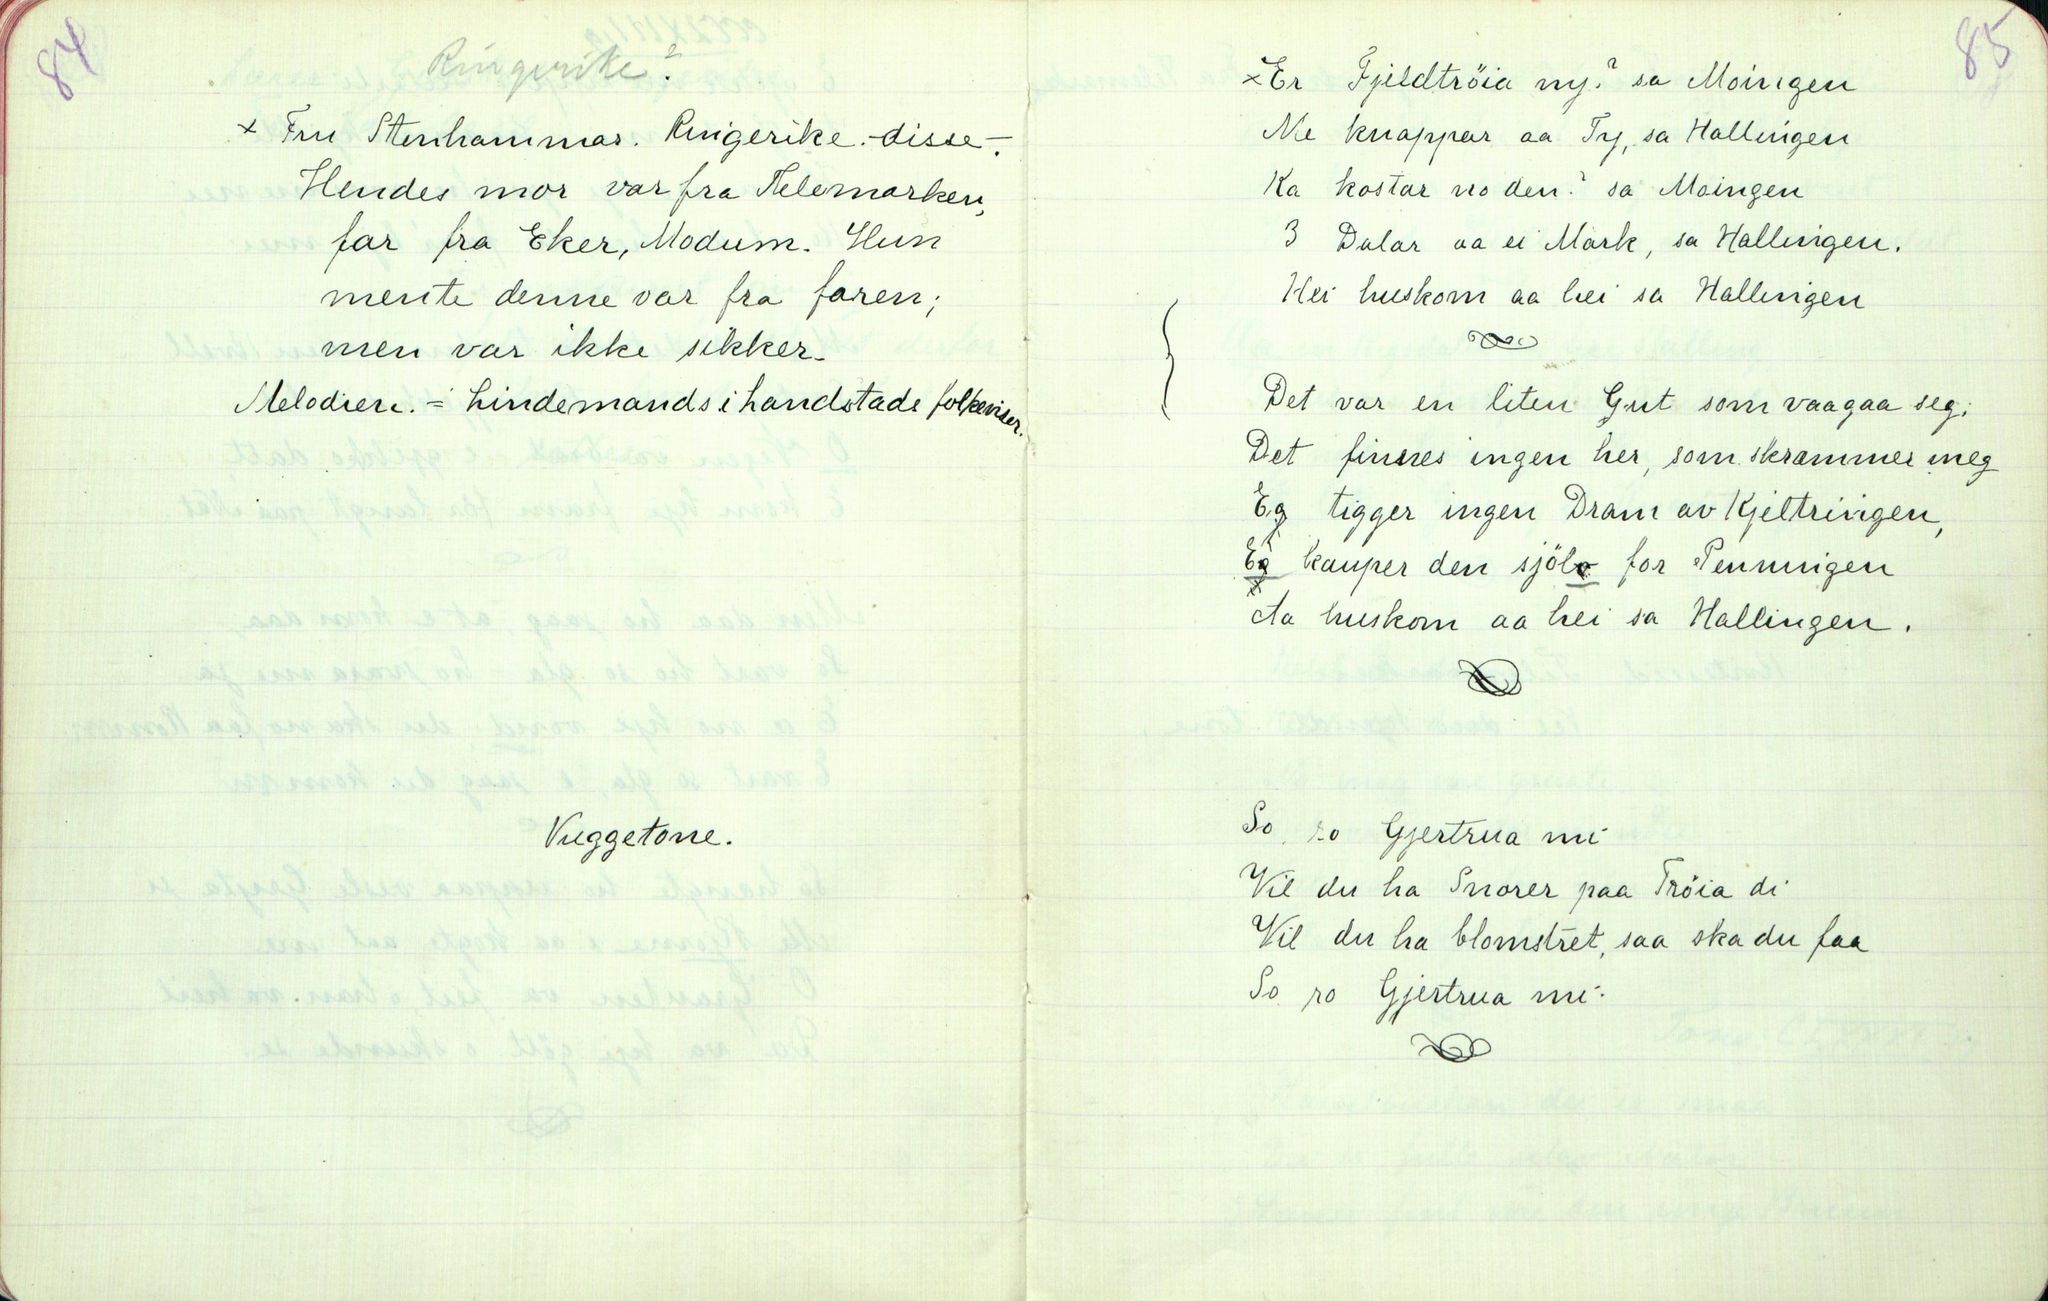 84
Ringerike?
x Fru Stenhammar. Ringerike. - disse -.
Hendes mor var fra Telemarken,
far fra Eker, Modum. Hun
mente denne var fra faren;
men var ikke sikker.
Melodien. = Lindemands i handstade folkeviser.
Vuggetone.
85
x Er Fjeldtröia ny? sa Moingen
Me knappar aa Ty, sa Hallingen
Ka kostar no den? sa Moingen
3 Dalar aa ei Mark, sa Hallingen.
Hei huskom aa hei sa Hallingen
Det var en liten Gut som vaagaa seg;
Det finnes ingen her, som skræmmer meg
Eg tigger ingen Dram av Kjeltringen,
Eg kauper den sjölv for Penningen
Aa huskom aa hei sa Hallingen.
So ro Gjertrua mi
Vil du ha Snorer paa Tröia di
Vil du ha blomstret, saa ska du faa
So ro Gjertrua mi.